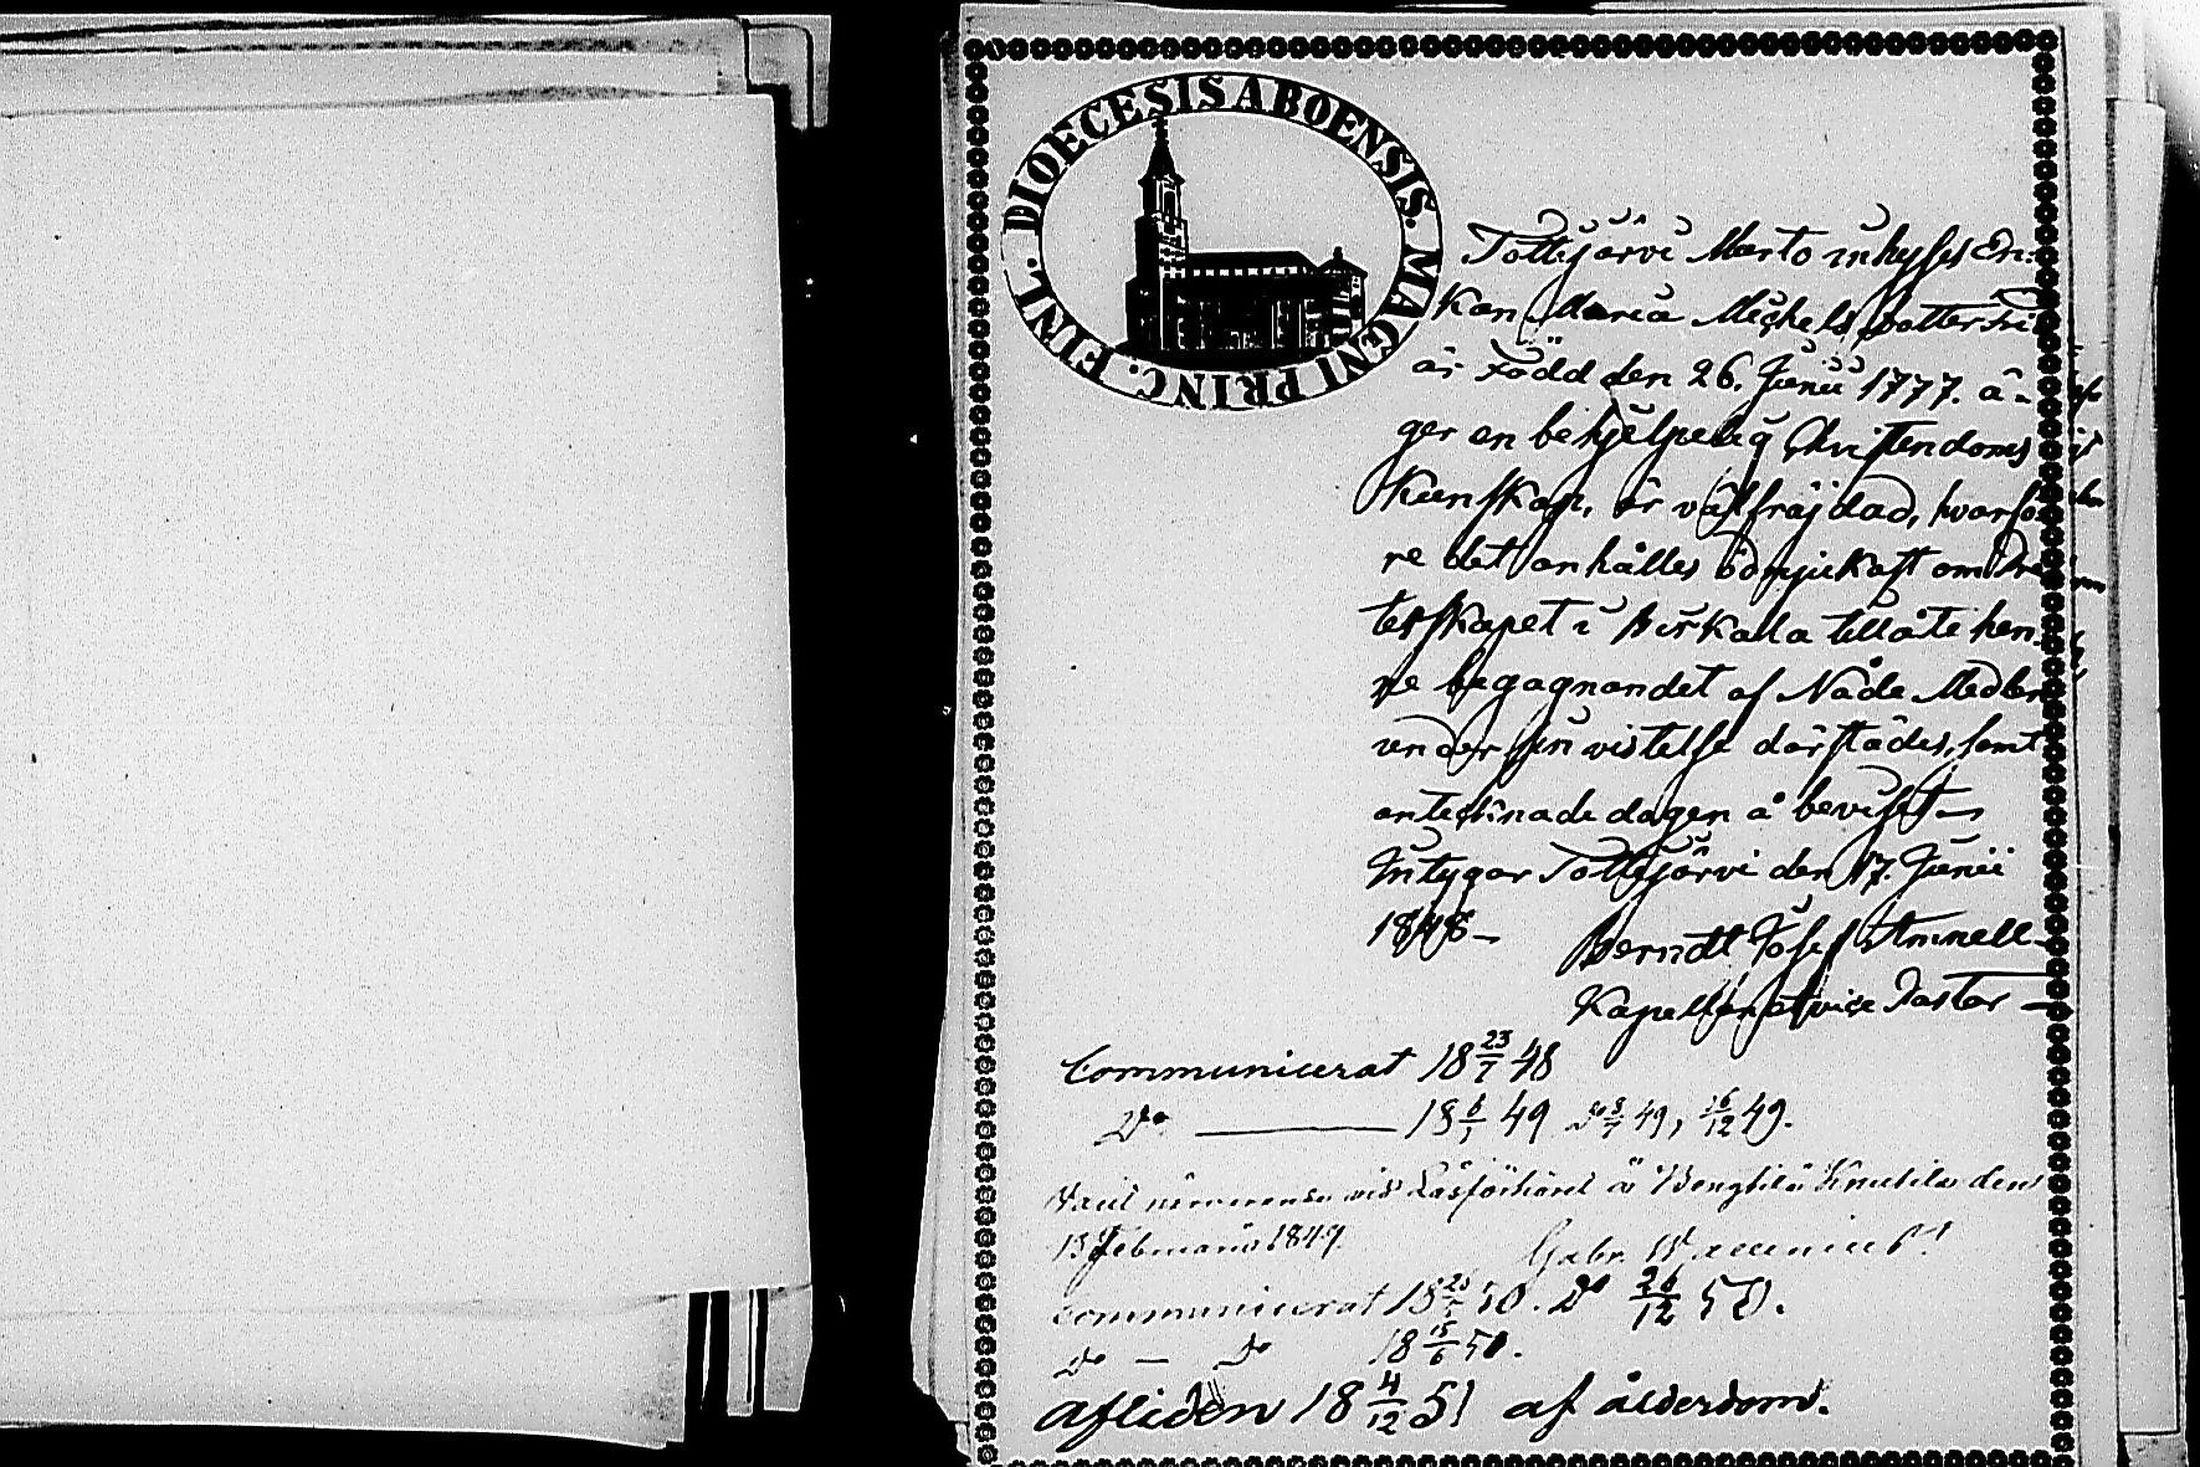 DIOECESIS ABOENSIS. MAGNI PRINC. FINL.
Tottijärvi Marto inhyses En-
kan Maria Michels dotter
är Född den 26. Junii 1777. ä-
ger en behjelpelig Christendoms
kunskap, är välfräjdad, hvarfö-
re det anhålles ödmjukast om Pre-
terskapet i Birkala tillåte hen-
ne begagnandet af Nåde Medlen
under sin vistelse därstädes, samt
antecknade dagen å beviset
Intygar Tottijärvi den 17. Junii
1848 - Berndt Josef Amnell
Kapellan et vice Pastor
Communicerat 18 23/7 48
Do 18 6/1 49 Do 8/7 49, 26/12 49.
Varit närvarande vid Läsförhöret å Bengtilä Knutila den
13 Februarii 1849. Gabr.
communicerat 18 50. Do 26/12 50.
Do - Do 18 15/6 51.
afliden 18 4/12 51 af ålderdom.